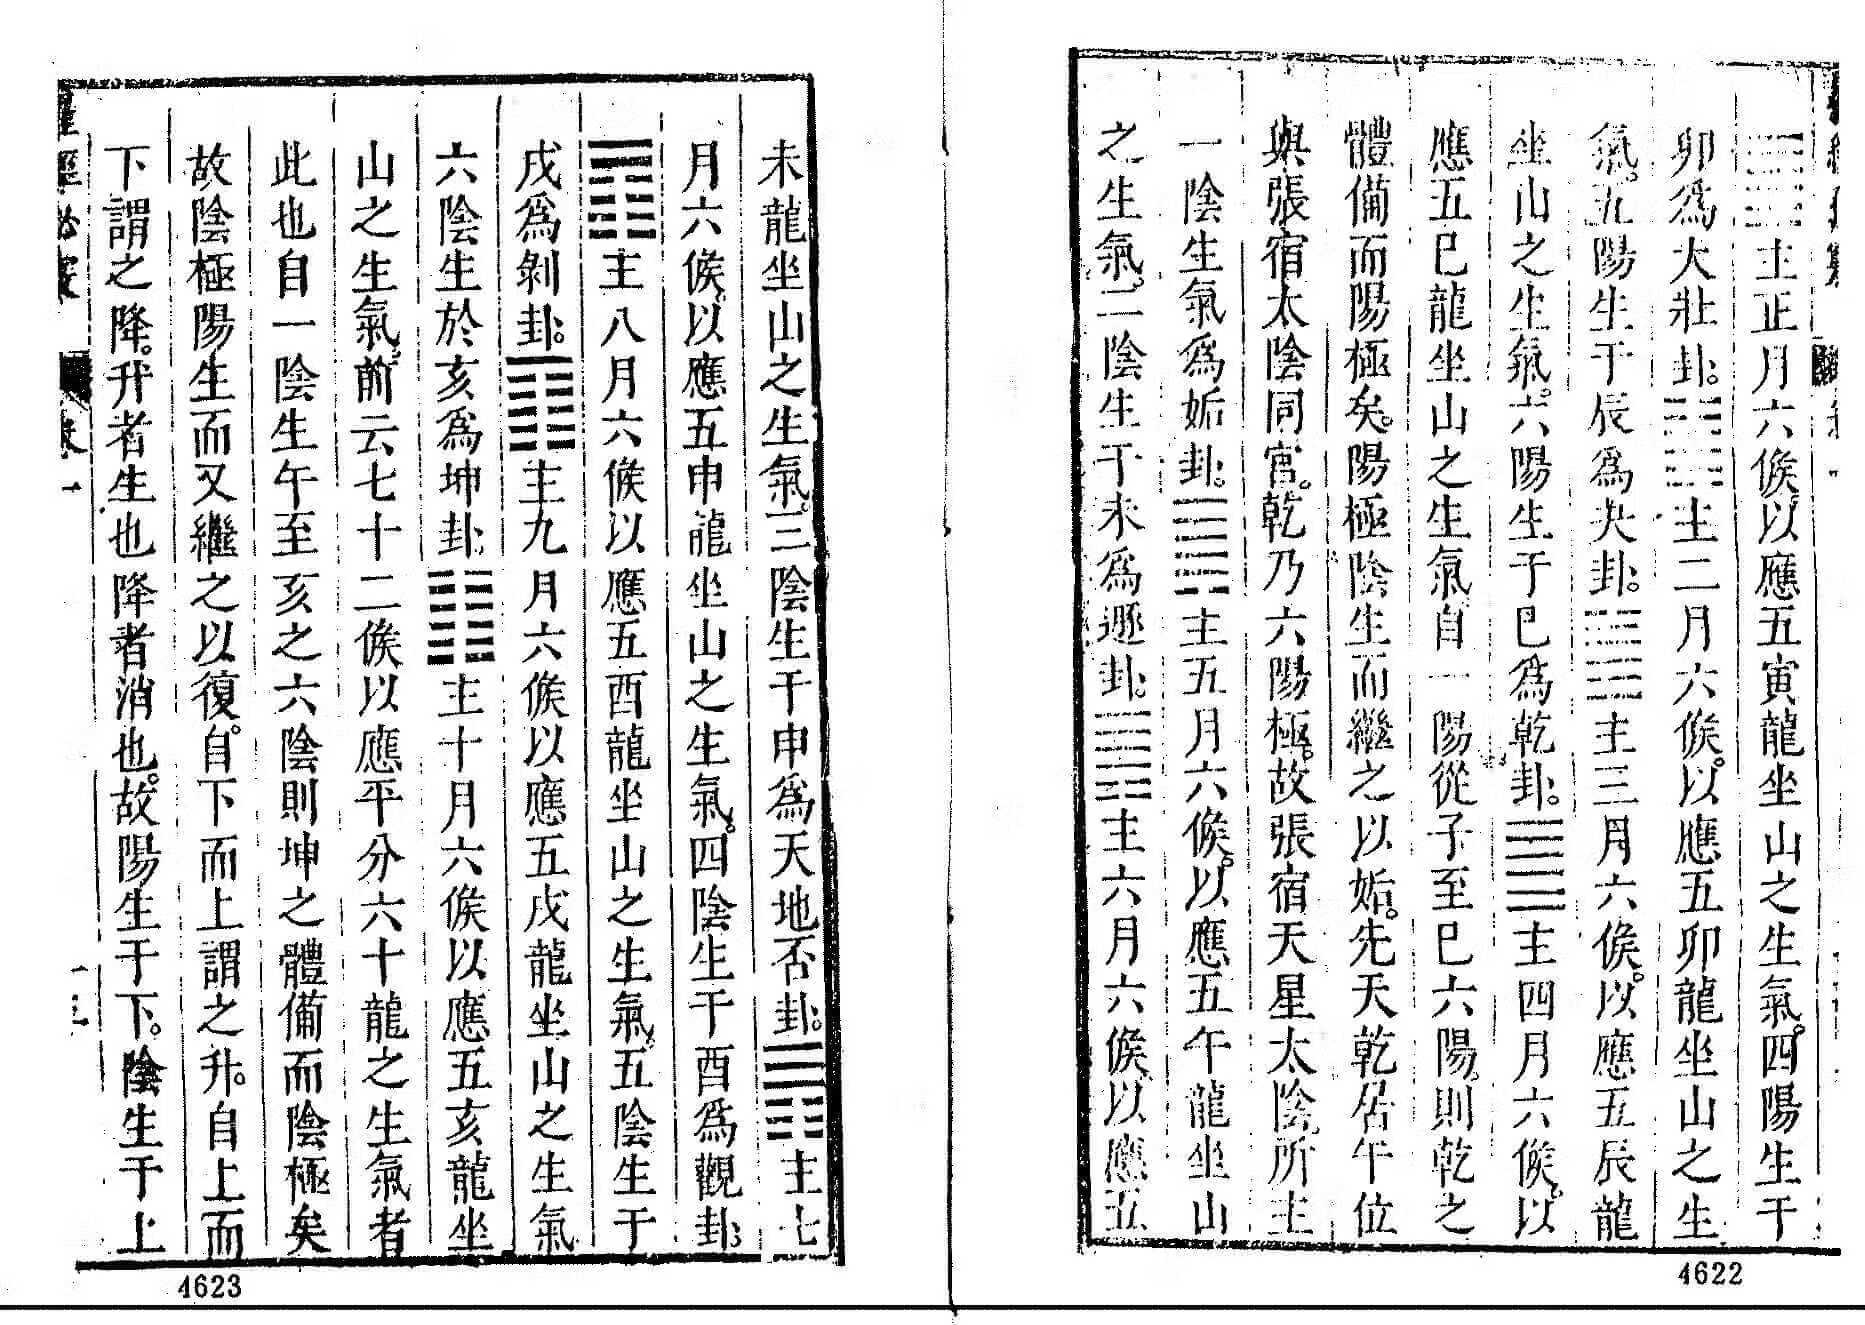 ䷊主正月六候。以應五寅龍坐山之生氣。四陽生于
卯爲大壯卦。䷡主二月六候。以應五卯龍坐山之生
氣。五陽生于辰爲夬卦。䷪主三月六候。以應五辰龍
坐山之生氣。六陽生于巳爲乾卦。䷀主四月六候。以
應五巳龍坐山之生氣自一陽從子至巳六陽。則乾之
體備而陽極矣。陽極陰生而繼之以姤。先天乾居午位
與張宿太陰同宮。乾乃六陽極。故張宿天星太陰所主
一陰生氣爲姤卦。䷫主五月六候。以應五午龍坐山
之生氣。二陰生于未爲遯卦。䷠主六月六候。以應五
4622
未龍坐山之生氣。三陰生于申爲天地否卦。䷋主七
月六候。以應五申龍坐山之生氣。四陰生于酉爲觀卦。
䷓主八月六候以應五酉龍坐山之生氣。五陰生于
戌爲剝卦。䷖主九月六候以應五戌龍坐山之生氣
六陰生於亥爲坤卦。䷁主十月六候以應五亥龍坐
山之生氣。前云七十二候以應平分六十龍之生氣者
此也自一陰生午至亥之六陰則坤之體備而陰極矣
故陰極陽生而又繼之以復。自下而上謂之升。自上而
下謂之降。升者生也降者消也。故陽生于下。陰生于上
卷一
4623